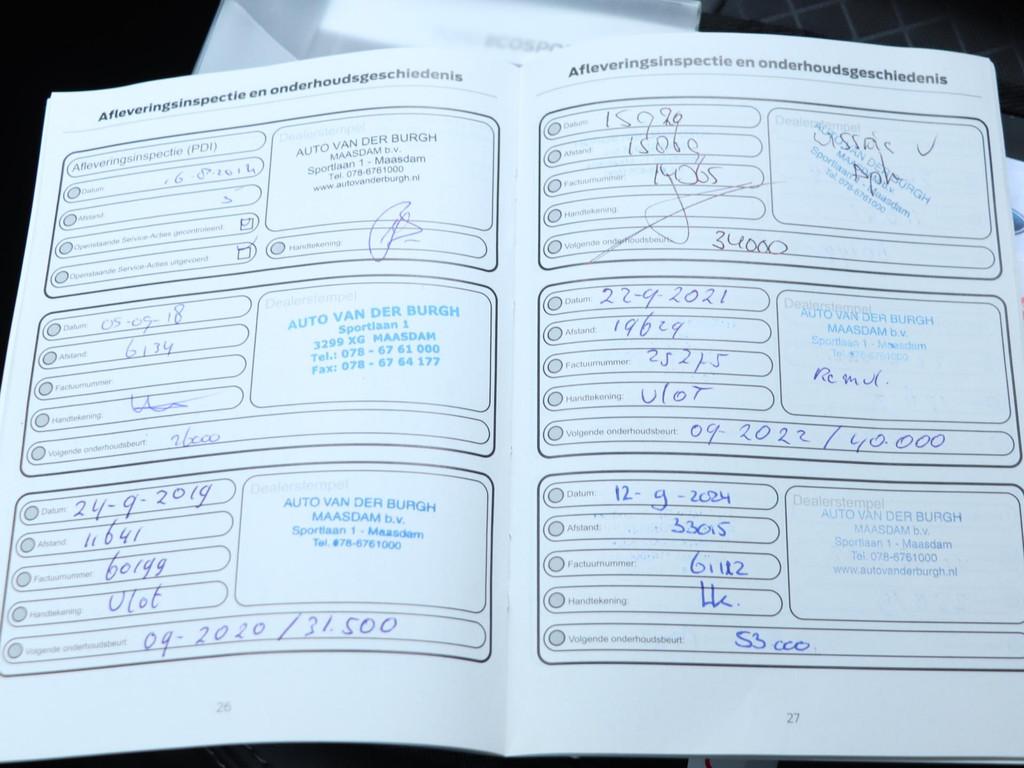 ECOSPO
Afleveringsinspectie en onderhoudsgeschiedenis
Afleveringsinspectie (PDI)
Datum:
Afstand: 5
Openstaande Service-Acties gecontroleerd:
Openstaande Service-Acties uitgevoerd:
Dealerstempel
AUTO VAN DER BURGH
MAASDAM b.v.
Sportlaan 1 - Maasdam
Tel. 078-6761000
www.autovanderburgh.nl
Handtekening:
Datum: 05-09-18
Afstand: 6134
Factuurnummer:
Handtekening:
Volgende onderhoudsbeurt: 26000
Dealerstempel
AUTO VAN DER BURGH
Sportlaan 1
3299 XG MAASDAM
Tel.: 078 - 67 61 000
Fax: 078 - 67 64 177
Datum: 24-9-2019
Afstand: 11641
Factuurnummer: 60199
Handtekening: Vlot
Volgende onderhoudsbeurt: 09-2020 / 31.500
Dealerstempel
AUTO VAN DER BURGH
MAASDAM b.v.
Sportlaan 1 - Maasdam
Tel. 078-6761000
26
Afleveringsinspectie en onderhoudsgeschiedenis
Datum:
Afstand: 15069
Factuurnummer: 14065
Handtekening:
Volgende onderhoudsbeurt: 34000
Dealerstempel
MAASDAM
Sportlaan 1 - Maasdam
Tel. 078-6761000
Datum: 22-9-2021
Afstand: 19629
Factuurnummer: 25275
Handtekening: VLOT
Volgende onderhoudsbeurt: 09-2022 / 40.000
Dealerstempel
AUTO VAN DER BURGH
MAASDAM b.v.
Sportlaan 1 - Maasdam
Tel. 078-6761000
Remvl.
Datum: 12-9-2024
Afstand: 33015
Factuurnummer:
Handtekening:
Volgende onderhoudsbeurt: 53000
Dealerstempel
AUTO VAN DER BURGH
MAASDAM b.v.
Sportlaan 1 - Maasdam
Tel. 078-6761000
www.autovanderburgh.nl
27